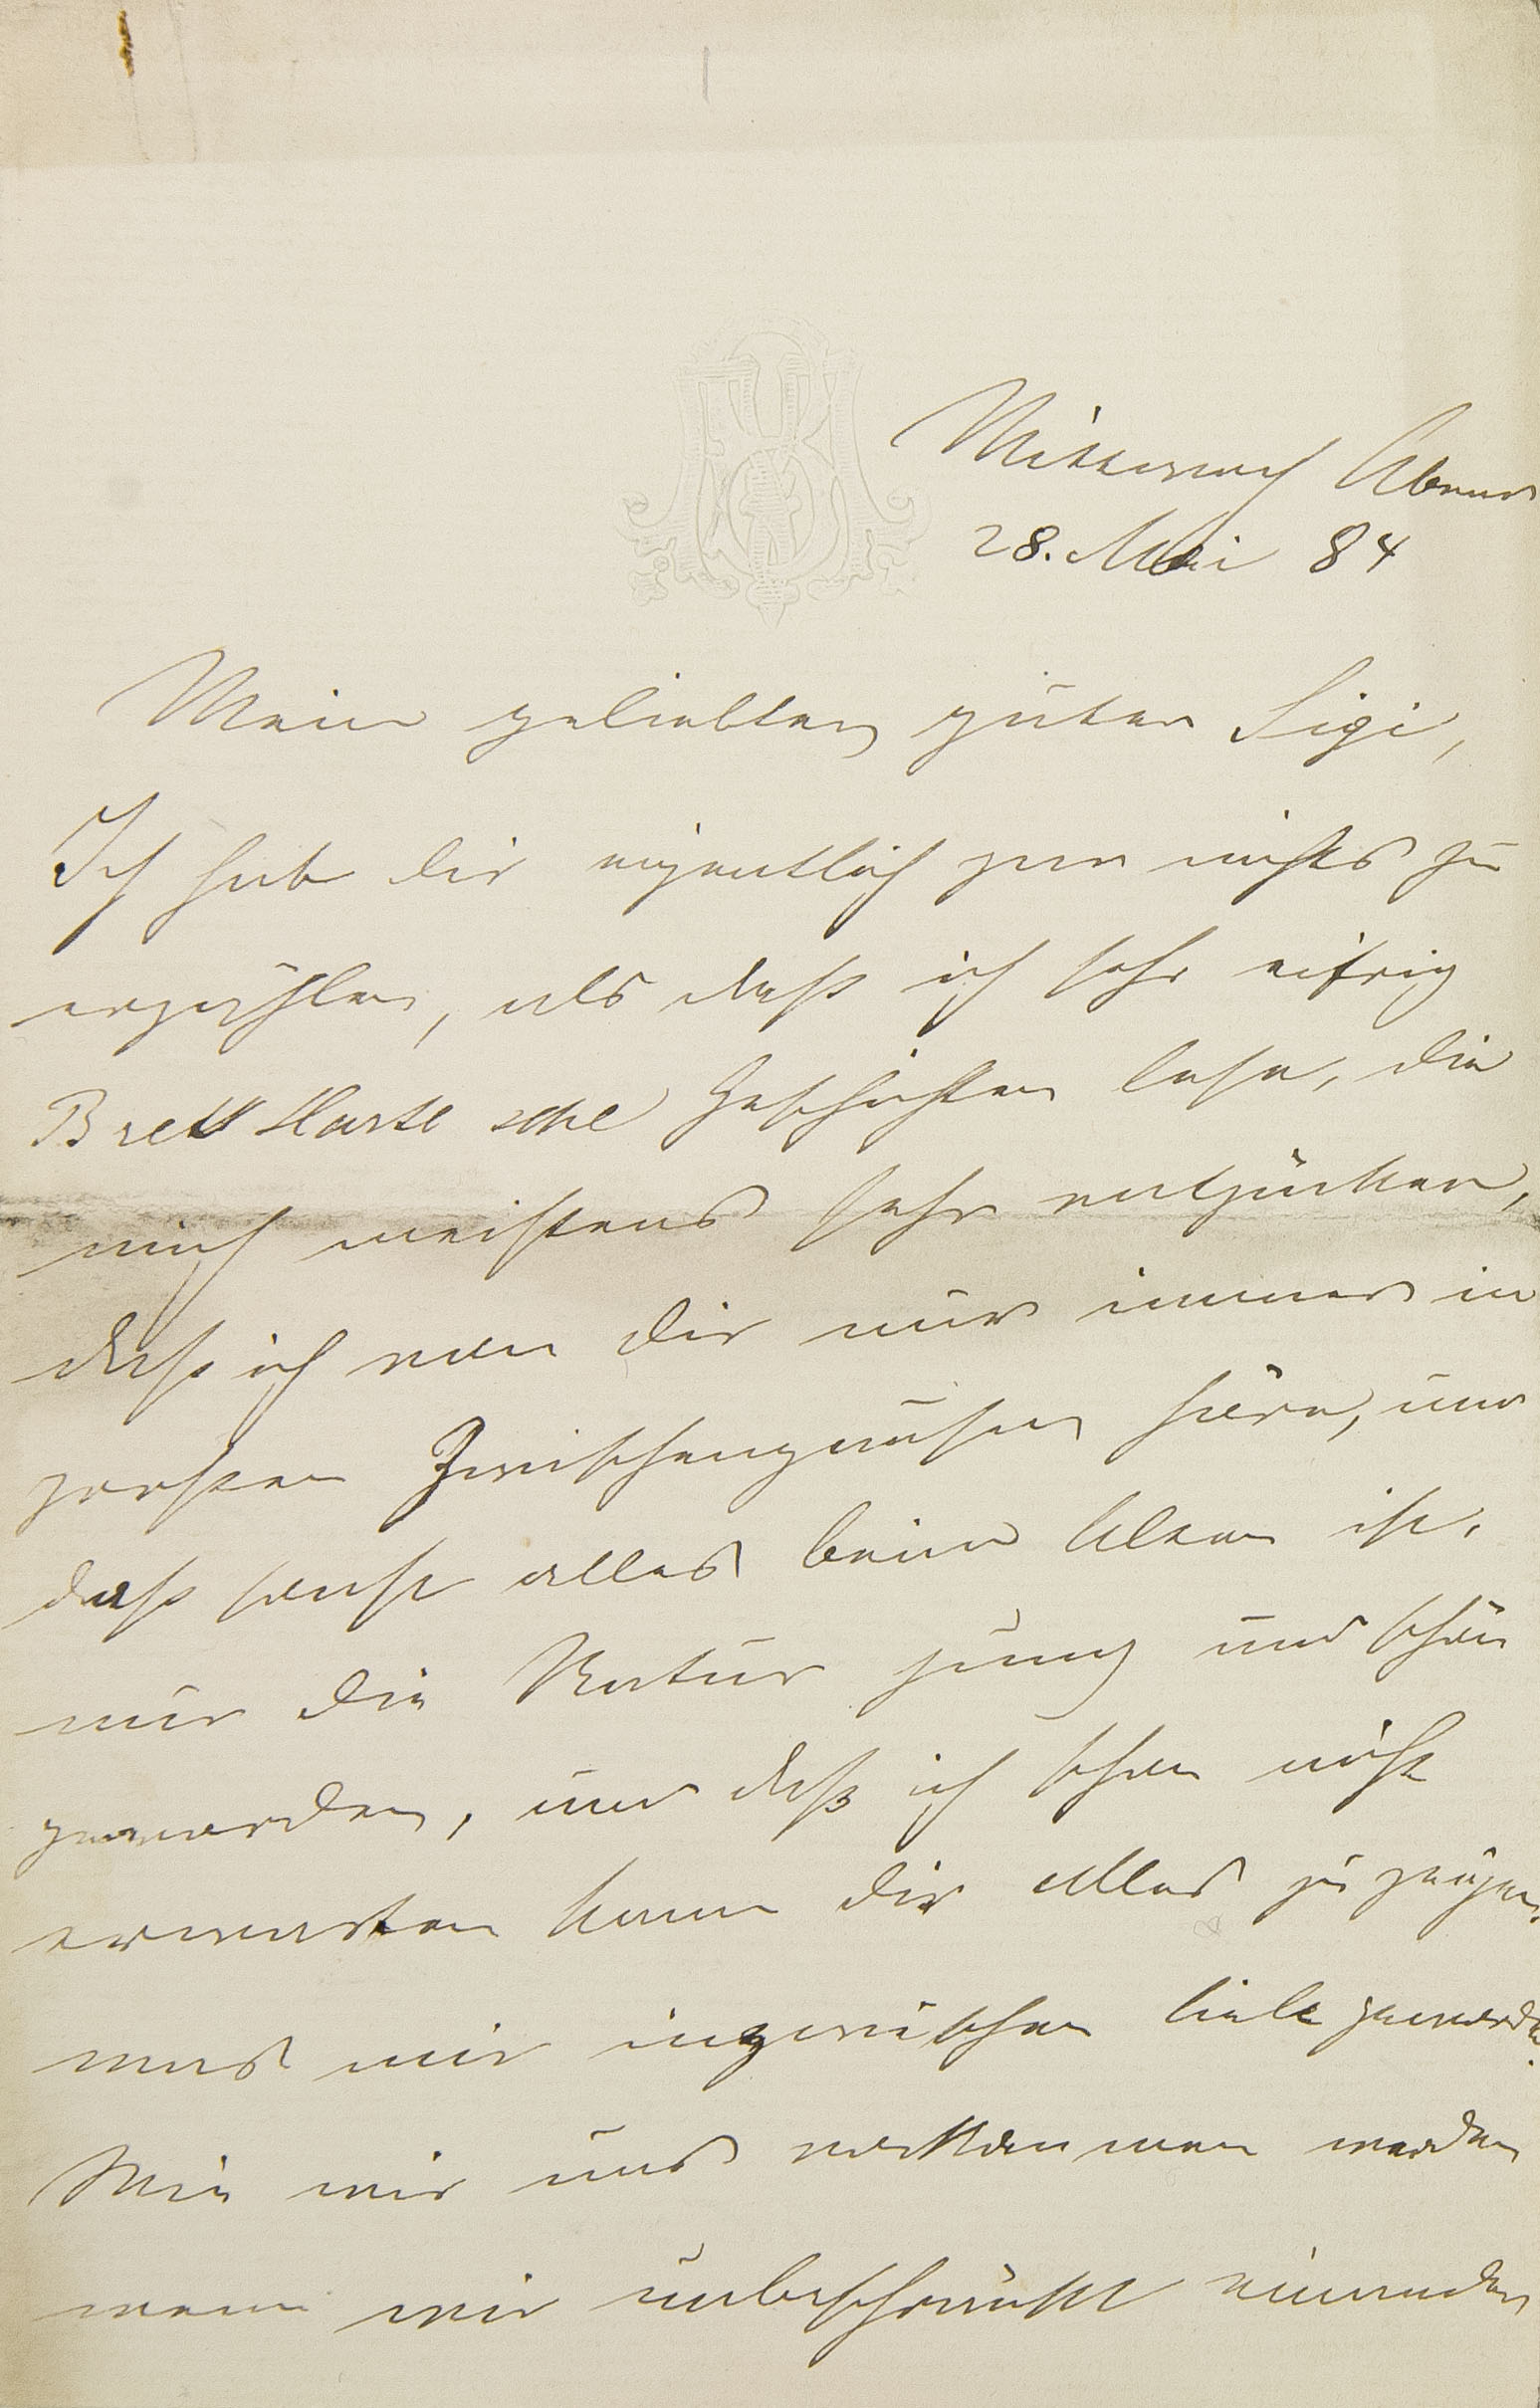 Mittwoch Abend
28. Mai 84
Mein geliebter guter Sigi,
Ich habe dir eigentlich gar nichts zu
erzählen, als daß ich sehr eifrig
Brett Harte sche Geschichten lese, die
mich meistens sehr entzücken,
daß ich von dir nur immer in
großen Zwischenpausen höre, und
daß sonst alles beim Alten ist,
nur die Natur jung und schön
geworden, und daß ich schon nicht
erwarten kann dir alles zu zeigen,
was mir inzwischen lieb geworden.
Wie wir uns vorkommen werden
wenn wir unbeschränkt einander